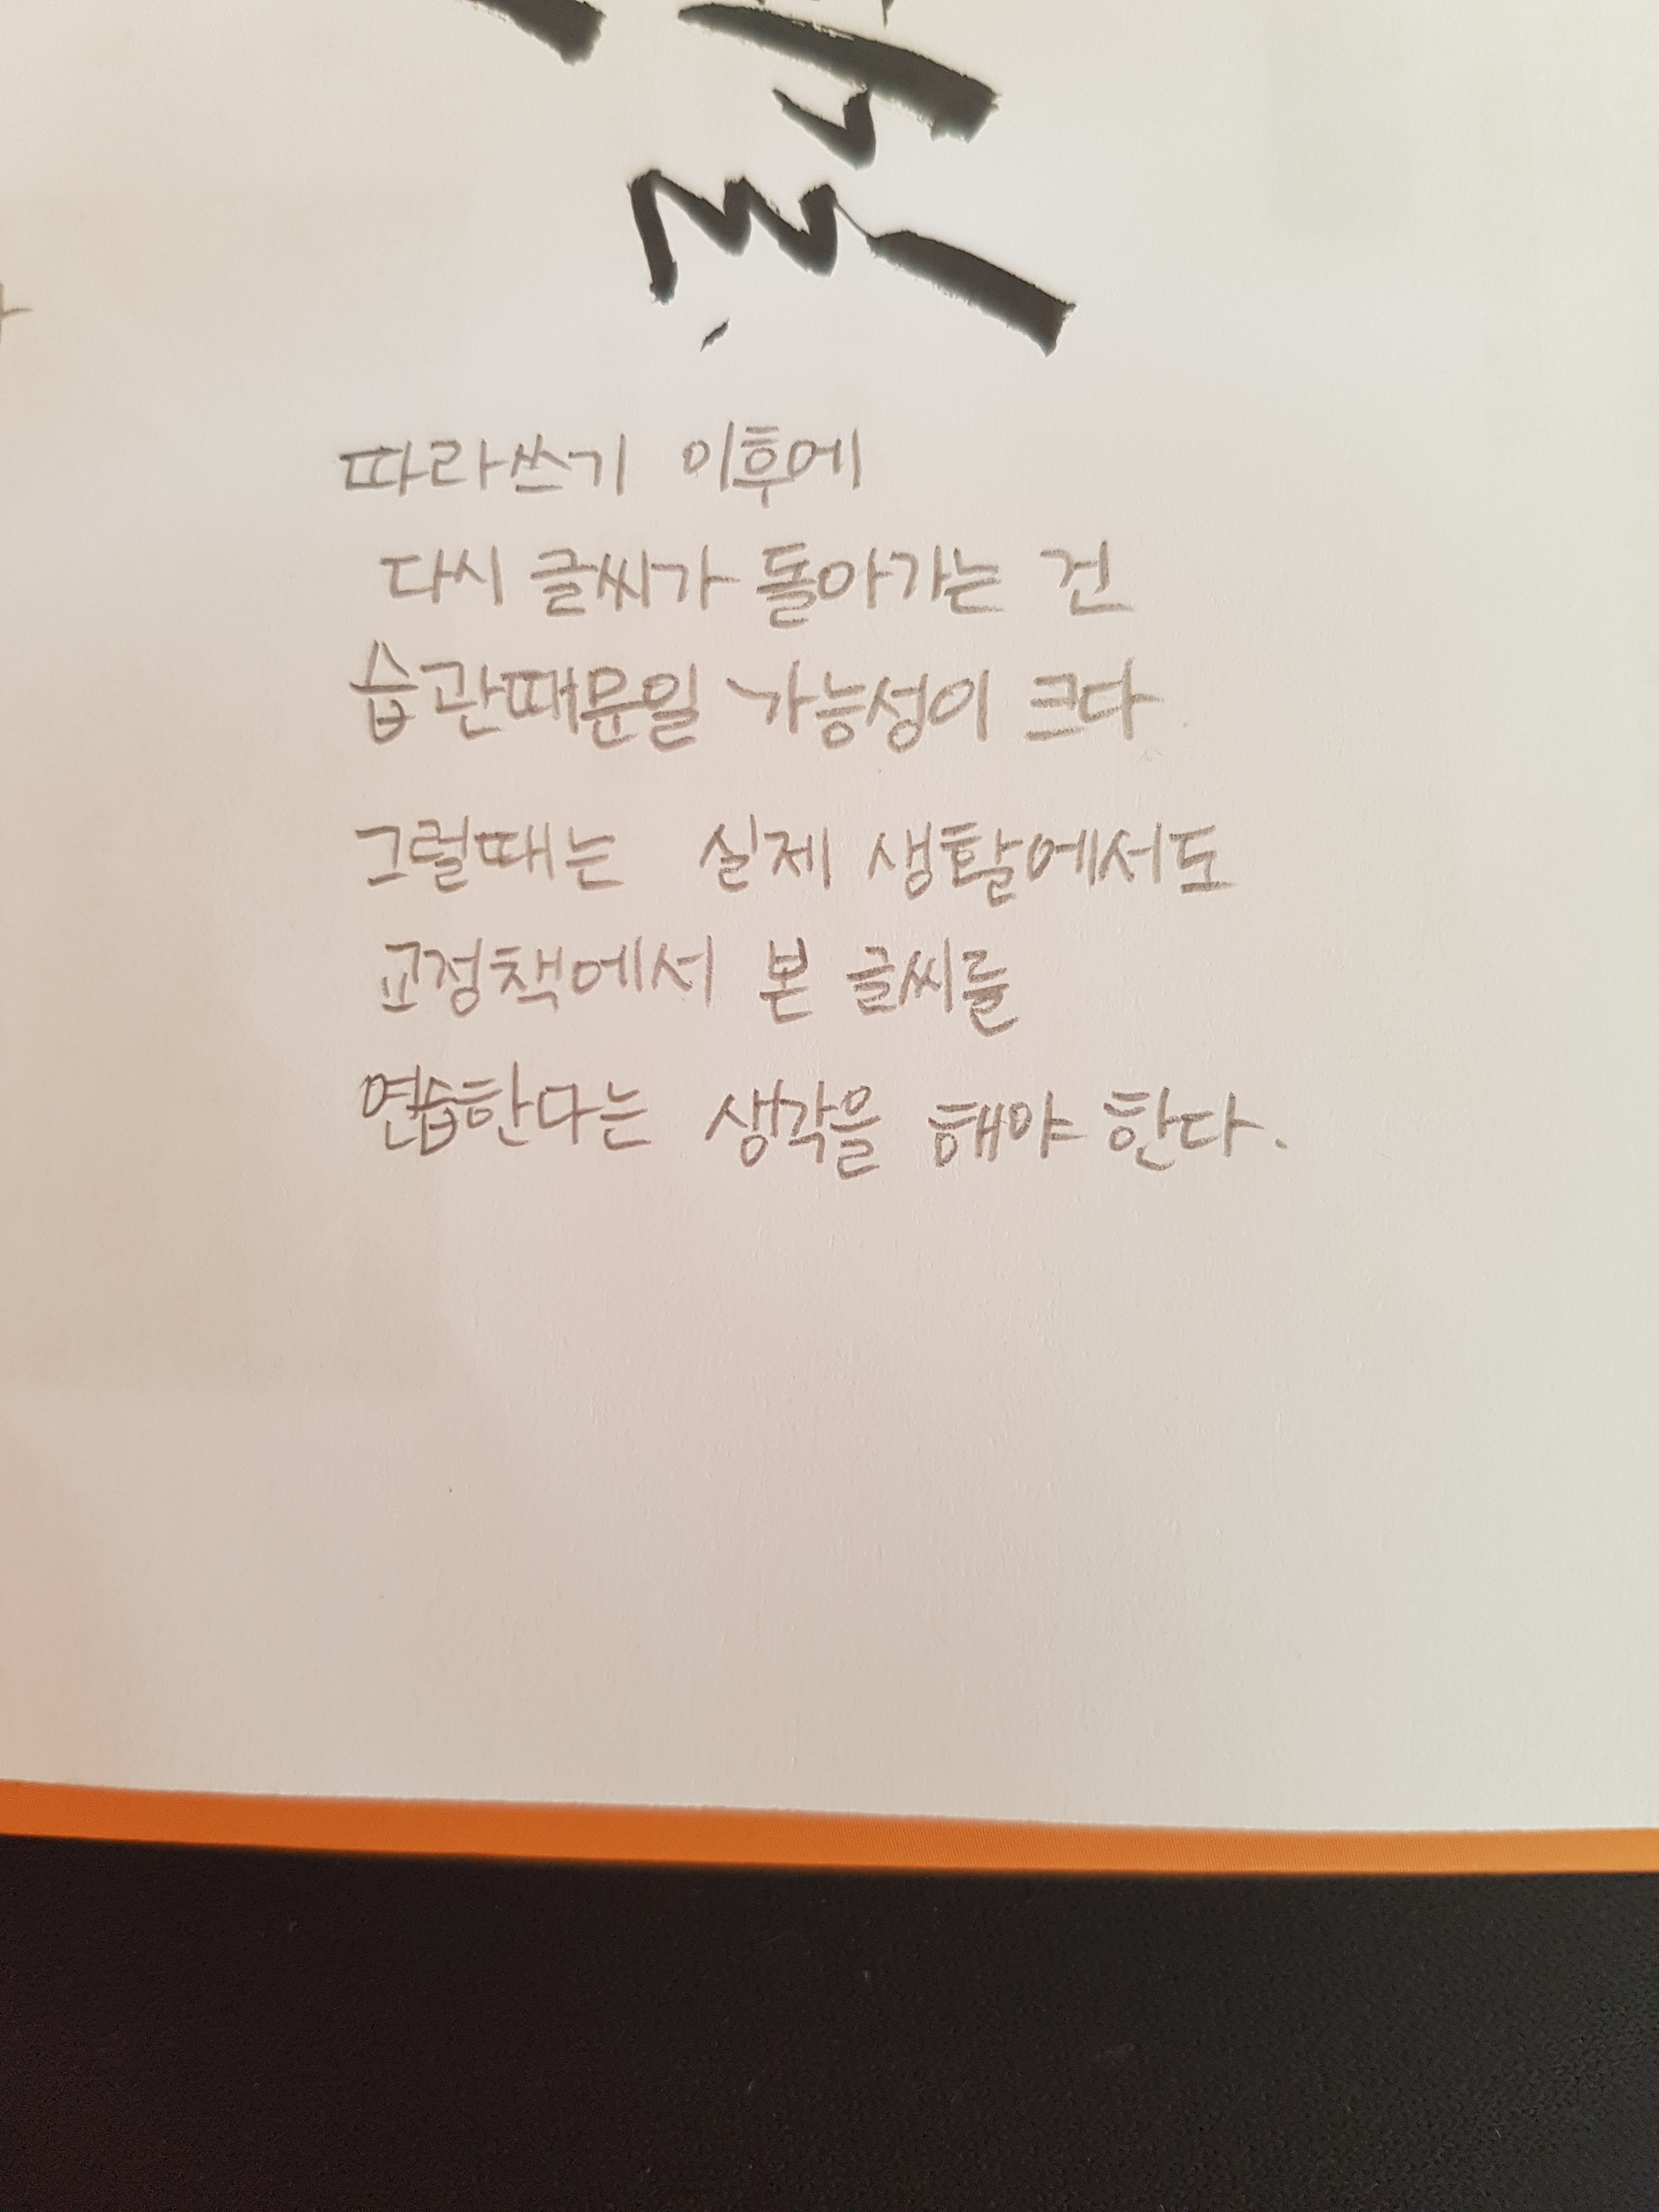 따라쓰기 이후에
다시 글씨가 돌아가는 건
습관때문일 가능성이 크다.
그럴때는 실제 생활에서도
교정책에서 본 글씨를
연습한다는 생각을 해야 한다.